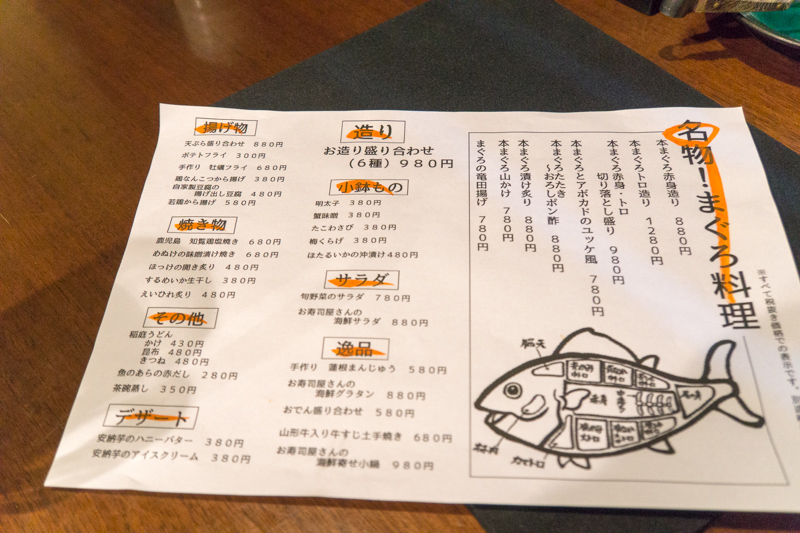 名物！まぐろ料理
※すべて税抜き価格での表示です。
本まぐろ赤身造り 880円
本まぐろトロ造り 1280円
本まぐろ赤身・トロ
切り落とし盛り 980円
まぐろとアボカドのユッケ風 780円
本まぐろたたき
おろしポン酢 880円
本まぐろ漬け炙り 880円
本まぐろ山かけ 780円
まぐろの竜田揚げ 780円
脳天
赤身
カマトロ
造り
お造り盛り合わせ
(6種) 980円
小鉢もの
明太子 380円
蟹味噌 380円
たこわさび 380円
梅くらげ 380円
ほたるいかの沖漬け 480円
サラダ
旬野菜のサラダ 780円
お寿司屋さんの
海鮮サラダ 880円
逸品
手作り 蓮根まんじゅう 580円
お寿司屋さんの
海鮮グラタン 880円
おでん盛り合わせ 580円
山形牛入り牛すじ土手焼き 680円
お寿司屋さんの
海鮮寄せ小鍋 980円
揚げ物
天ぷら盛り合わせ 880円
ポテトフライ 300円
手作り 牡蠣フライ 680円
鶏なんこつから揚げ 380円
自家製豆腐の
揚げ出し豆腐 480円
若鶏から揚げ 580円
焼き物
鹿児島 知覧鶏塩焼き 680円
めぬけの味噌漬け焼き 680円
ほっけの開き炙り 480円
するめいか生干し 380円
えいひれ炙り 480円
その他
稲庭うどん
かけ 430円
昆布 480円
きつね 480円
魚のあらの赤だし 280円
茶碗蒸し 350円
デザート
安納芋のハニーバター 380円
安納芋のアイスクリーム 380円